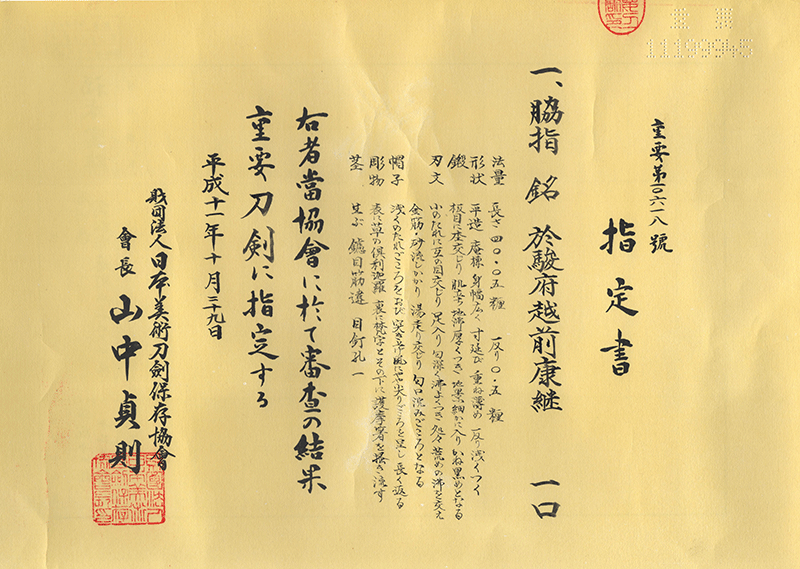 重要
11199945
重要第一〇六一八號
指定書
一、脇指 銘 於駿府越前康継 一口
法量 長さ 四〇・〇五糎 反り 〇・五糎
形状 平造 庵棟 身幅広く 寸延び 重ね薄め 反り浅くつく
鍛 板目に杢交じり 肌立ち 地沸厚くつき 地景細かに入り かね黒めとなる
刃文 小のたれに互の目交じり 足入り 匂深く 沸よくつき 処々荒めの沸を交え
金筋・砂流しかかり 湯走り交じり 匂口沈みごころとなる
帽子 浅くのたれごころをおび 突き上げ風にやや尖りごころを呈し 長く返る
彫物 表に草の倶利迦羅 裏に梵字とその下に護摩箸を掻き流す
茎 生ぶ 鑢目筋違 目釘孔一
右者當協會に於て審査の結果
重要刀剣に指定する
平成十一年十月二十九日
財団法人日本美術刀剣保存協會
會長 山中貞則